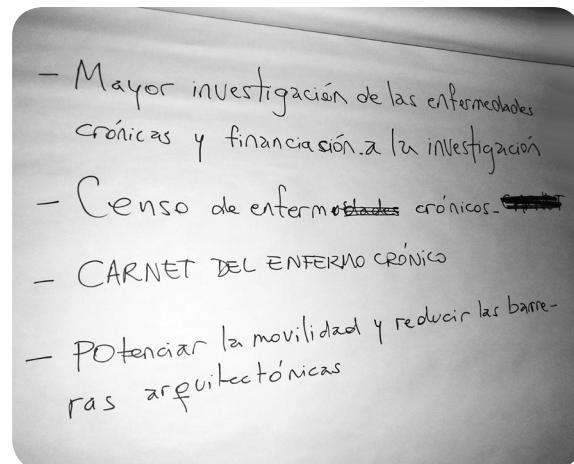 - Mayor investigación de las enfermedades
crónicas y financiasión a la investigación
- Censo de enfermos crónicos.
- CARNET DEL ENFERMO CRÓNICO
- POtenciar la movilidad y reducir las barre-
ras arquitectónicas